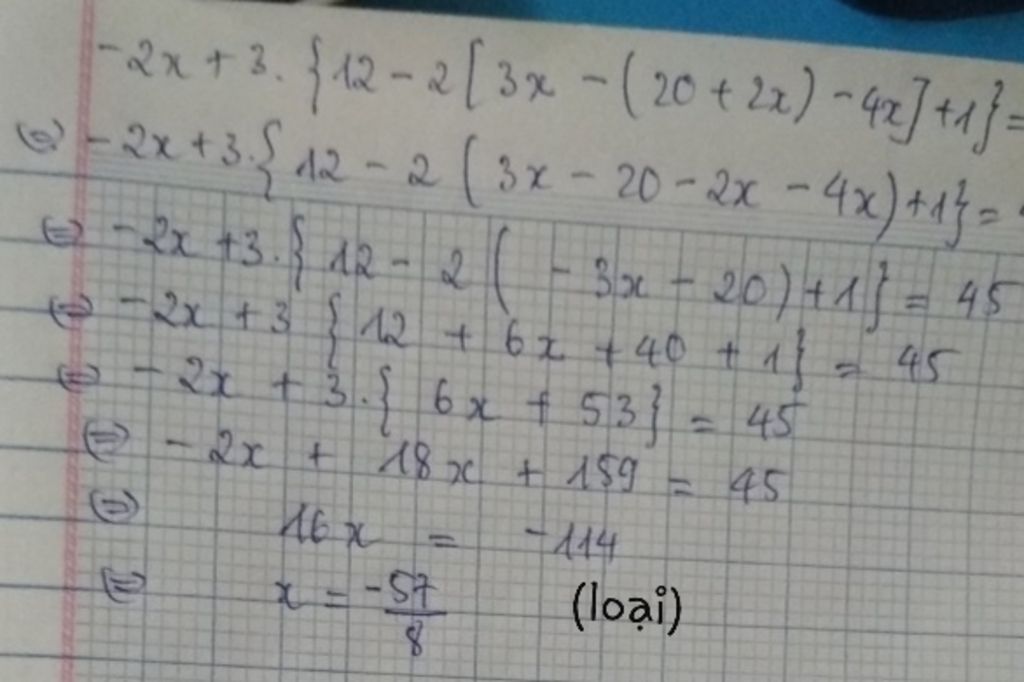 -2x + 3. {12 - 2 [3x - (20 + 2x) - 4x] + 1} =
⇔ -2x + 3. {12 - 2 (3x - 20 - 2x - 4x) + 1} =
⇔ -2x + 3. {12 - 2 ( - 3x - 20) + 1} = 45
⇔ -2x + 3 {12 + 6x + 40 + 1} = 45
⇔ -2x + 3. {6x + 53} = 45
⇔ -2x + 18x + 159 = 45
⇔ 16x = -114
⇔ x = -57/8 (loại)